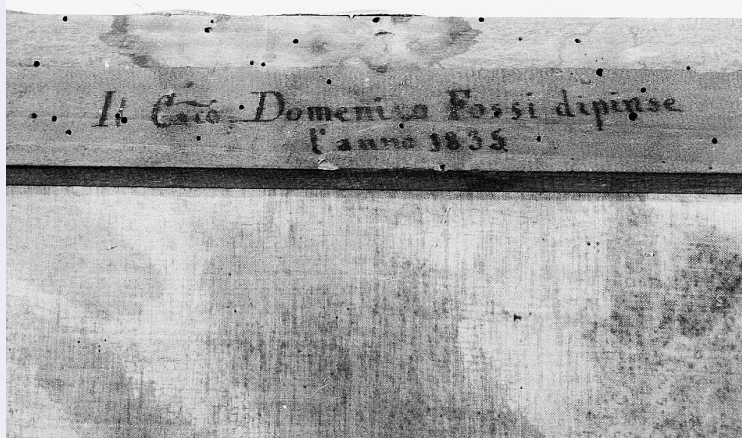 Il Caio Domenico Fossi dipinse
l'anno 1835